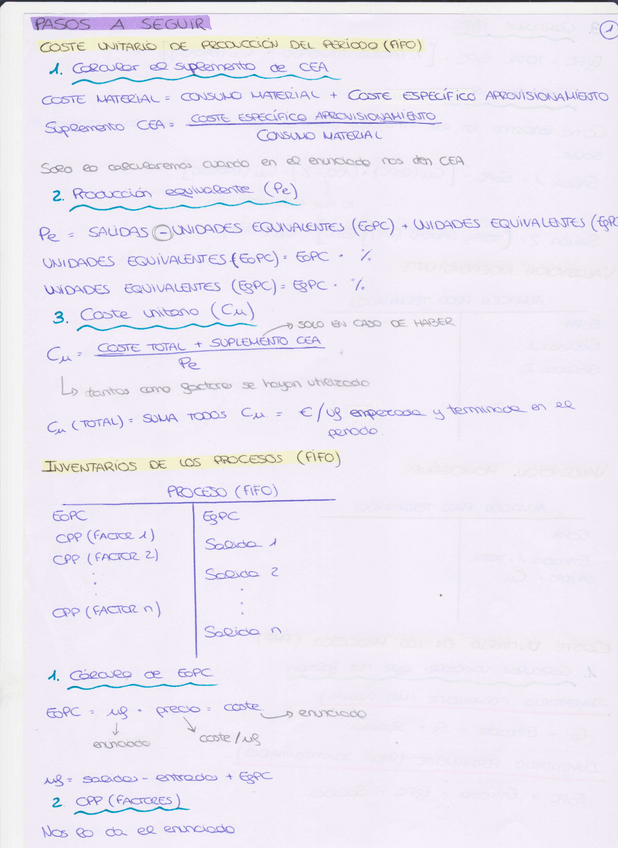 PASOS A SEGUIR
1
COSTE UNITARIO DE PRODUCCIÓN DEL PERÍODO (FIFO)
1. Calcular el suplemento de CEA
COSTE MATERIAL = CONSUMO MATERIAL + COSTE ESPECÍFICO APROVISIONAMIENTO
Suplemento CEA = COSTE ESPECÍFICO APROVISIONAMIENTO
CONSUMO MATERIAL
Solo lo calcularemos cuando en el enunciado nos den CEA
2. Producción equivalente (Pe)
Pe = SALIDAS - UNIDADES EQUIVALENTES (EoPC) + UNIDADES EQUIVALENTES (EfPC
UNIDADES EQUIVALENTES (EoPC) = EoPC · %
UNIDADES EQUIVALENTES (EfPC) = EfPC · %
3. Coste unitario (Cu)
SOLO EN CASO DE HABER
Cu = COSTE TOTAL + SUPLEMENTO CEA
Pe
tantos como factores se hayan utilizado
Cu (TOTAL) = SUMA TODOS Cu = €/uf empezada y terminada en el
periodo.
INVENTARIOS DE LOS PROCESOS (FIFO)
PROCESO (FIFO)
EoPC EfPC
CPP (FACTOR 1) Salida 1
CPP (FACTOR 2) Salida 2
CPP (FACTOR n) Salida n
1. Cálculo de EoPC
EoPC = uf · precio = coste → enunciado
enunciado coste/uf
uf = salidas - entradas + EfPC
2 CPP (FACTORES)
Nos lo da el enunciado